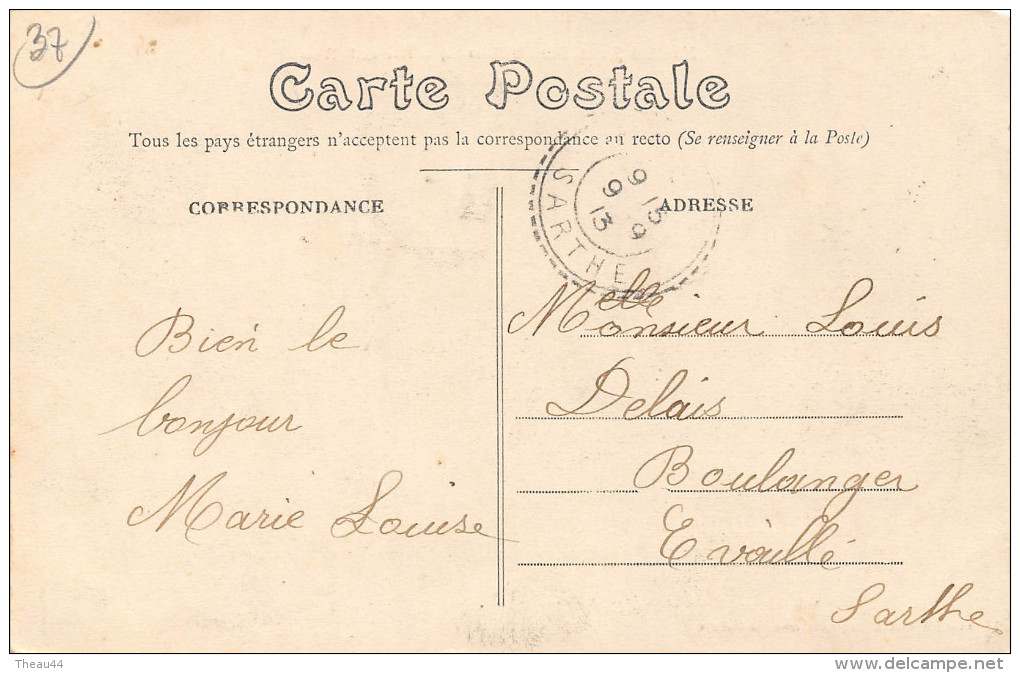 37
Carte Postale
Tous les pays étrangers n'acceptent pas la correspondance au recto (Se renseigner à la Poste)
CORRESPONDANCE
Bien le
bonjour
Marie Louise
SARTHE
9 15
9 9
13
ADRESSE
elle
Monsieur Louis
Delais
Boulanger
Evaillé
Sarthe
Theau44
www.delcampe.net